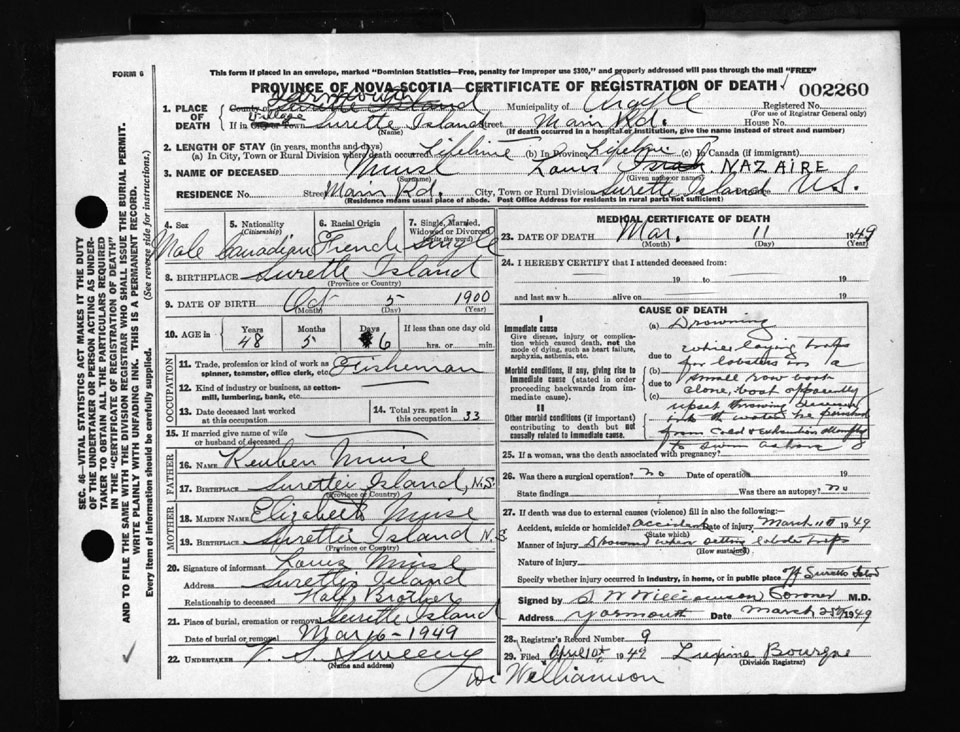 FORM 6
This form if placed in an envelope, marked "Dominion Statistics—Free, penalty for improper use $300," and properly addressed will pass through the mail "FREE"
PROVINCE OF NOVA SCOTIA—CERTIFICATE OF REGISTRATION OF DEATH
002260
1. PLACE OF DEATH
County of Municipality of Argyle Registered No.
(For use of Registrar General only)
If in City or Town Village Surette Island Street Main Rd. House No.
(Name) (If death occurred in a hospital or institution, give the name instead of street and number)
2. LENGTH OF STAY (in years, months and days)
(a) In City, Town or Rural Division where death occurred Lifetime (b) In Province Lifetime (c) In Canada (if immigrant)
3. NAME OF DECEASED Muise Louis NAZAIRE
(Surname) (Given name or names)
RESIDENCE No. Street Main Rd. City, Town or Rural Division Surette Island N.S.
(Residence means usual place of abode. Post Office Address for residents in rural parts not sufficient)
4. Sex 5. Nationality (Citizenship) 6. Racial Origin 7. Single, Married, Widowed or Divorced (write the word)
Male Canadian French Single
8. BIRTHPLACE Surette Island
(Province or Country)
9. DATE OF BIRTH Oct 5 1900
(Month) (Day) (Year)
10. AGE in Years Months Days If less than one day old
48 5 6 hrs. or min.
OCCUPATION
11. Trade, profession or kind of work as spinner, teamster, office clerk, etc. Fisherman
12. Kind of industry or business, as cotton-mill, lumbering, bank, etc.
13. Date deceased last worked at this occupation 14. Total yrs. spent in this occupation 33
15. If married give name of wife or husband of deceased
FATHER
16. NAME Reuben Muise
17. BIRTHPLACE Surette Island, N.S.
(Province or Country)
MOTHER
18. MAIDEN NAME Elizabeth Muise
19. BIRTHPLACE Surette Island N.S.
(Province or Country)
20. Signature of informant Louis Muise
Address Surette Island
Relationship to deceased Half Brother
21. Place of burial, cremation or removal Surette Island
Date of burial or removal Mar 16-1949
22. UNDERTAKER V. S. Sweeny
(Name and address)
MEDICAL CERTIFICATE OF DEATH
23. DATE OF DEATH Mar. 11 1949
(Month) (Day) (Year)
24. I HEREBY CERTIFY that I attended deceased from:
19 to 19
and last saw h alive on 19
I
Immediate cause
Give disease, injury or complication which caused death, not the mode of dying, such as heart failure, asphyxia, asthenia, etc.
Morbid conditions, if any, giving rise to immediate cause (stated in order proceeding backwards from immediate cause).
II
Other morbid conditions (if important) contributing to death but not causally related to immediate cause.
CAUSE OF DEATH
(a) Drowning
due to while laying traps
(b) for lobsters in a
due to small row boat
(c) alone, boat apparently
upset throwing deceased
into the water he perished
from cold & exhaustion attempting
to swim ashore
25. If a woman, was the death associated with pregnancy?
26. Was there a surgical operation? no Date of operation 19
State findings Was there an autopsy? no
27. If death was due to external causes (violence) fill in also the following:—
Accident, suicide or homicide? accident Date of injury March 11th 1949
(State which)
Manner of injury Drowned when setting lobster traps
(How sustained)
Nature of injury
Specify whether injury occurred in industry, in home, or in public place off Surette Island
Signed by S W Williamson Coroner M.D.
Address Yarmouth Date March 25th 1949
28. Registrar's Record Number 9
29. Filed April 10th 1949 Lupine Bourque
(Division Registrar)
Dr Williamson
SEC. 46—VITAL STATISTICS ACT MAKES IT THE DUTY
OF THE UNDERTAKER OR PERSON ACTING AS UNDER-
TAKER TO OBTAIN ALL THE PARTICULARS REQUIRED
IN THE "CERTIFICATE OF REGISTRATION OF DEATH"
AND TO FILE THE SAME WITH THE DIVISION REGISTRAR WHO SHALL ISSUE THE BURIAL PERMIT.
WRITE PLAINLY WITH UNFADING INK. THIS IS A PERMANENT RECORD.
Every item of information should be carefully supplied. (See reverse side for instructions.)